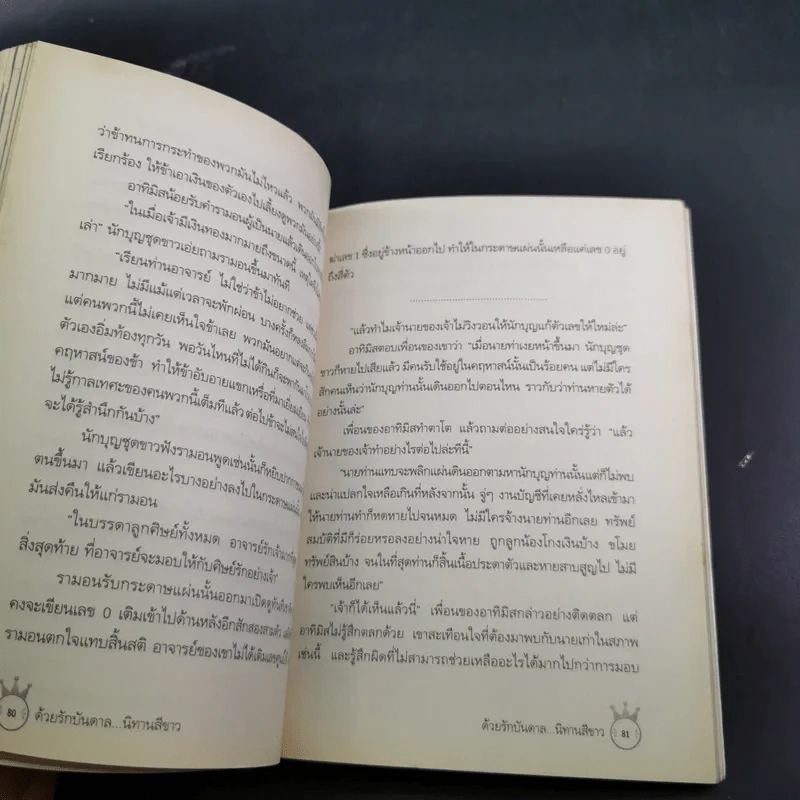 ว่าข้าทนการกระทำของพวกมันไม่ไหวแล้ว พวกมัน
เรียกร้อง ให้ข้าเอาเงินของตัวเองไปเลี้ยงดูพวกมันอย่าง
อาทิมิสน้อยรับคำรามอนผู้เป็นนายแล้วเดินออก
"ในเมื่อเจ้ามีเงินทองมากมายถึงขนาดนี้
เล่า" นักบุญชุดขาวเอ่ยถามรามอนขึ้นมาทันที
"เรียนท่านอาจารย์ ไม่ใช่ว่าข้าไม่อยากช่วย
มากมาย ไม่มีแม้แต่เวลาจะพักผ่อน บางครั้งก็
แต่คนพวกนี้ไม่เคยเห็นใจข้าเลย พวกมันอยากแต่จะ
ตัวเองอิ่มท้องทุกวัน พอวันไหนที่ไม่ได้กินก็จะพากัน
คฤหาสน์ของข้า ทำให้ข้าอับอายแขกเหรื่อที่มาเยี่ยมเยือน
ไม่รู้กาลเทศะของคนพวกนี้เต็มทีแล้ว ต่อไปข้าจะไม่
จะได้รู้สำนึกกันบ้าง"
นักบุญชุดขาวฟังรามอนพูดเช่นนั้นก็หยิบปากกา
ตนขึ้นมา แล้วเขียนอะไรบางอย่างลงไปในกระดาษแผ่นนั้น
มันส่งคืนให้แก่รามอน
"ในบรรดาลูกศิษย์ทั้งหมด อาจารย์รักเจ้ามากที่สุด
สิ่งสุดท้าย ที่อาจารย์จะมอบให้กับศิษย์รักอย่างเจ้า"
รามอนรับกระดาษแผ่นนั้นออกมาเปิดดูทันที
คงจะเขียนเลข 0 เติมเข้าไปด้านหลังอีกสักสองสามตัว
รามอนตกใจแทบสิ้นสติ อาจารย์ของเขาไม่ได้เติมเลขศูนย์
80 ด้วยรักบันดาล...นิทานสีขาว
ฆ่าเลข 1 ซึ่งอยู่ข้างหน้าออกไป ทำให้ในกระดาษแผ่นนั้นเหลือแค่เลข 0 อยู่
ถึงสี่ตัว
"แล้วทำไมเจ้านายของเจ้าไม่วิงวอนให้นักบุญแก้ตัวเลขให้ใหม่ล่ะ"
อาทิมิสตอบเพื่อนของเขาว่า "เมื่อนายท่าเงยหน้าขึ้นมา นักบุญชุด
ขาวก็หายไปเสียแล้ว มีคนรับใช้อยู่ในคฤหาสน์นั้นเป็นร้อยคน แต่ไม่มีใคร
สักคนเห็นว่านักบุญท่านนั้นเดินออกไปตอนไหน ราวกับว่าท่านหายตัวได้
อย่างนั้นล่ะ"
เพื่อนของอาทิมิสทำตาโต แล้วถามต่ออย่างสนใจใคร่รู้ว่า "แล้ว
เจ้านายของเจ้าทำอย่างไรต่อไปล่ะทีนี้"
"นายท่านแทบจะพลิกแผ่นดินออกตามหานักบุญท่านนั้นแต่ก็ไม่พบ
และน่าแปลกใจเหลือเกินที่หลังจากนั้น จู่ๆ งานบัญชีที่เคยหลั่งไหลเข้ามา
ให้นายท่านทำก็หดหายไปจนหมด ไม่มีใครจ้างนายท่านอีกเลย ทรัพย์
สมบัติที่มีก็ร่อยหรอลงอย่างน่าใจหาย ถูกลูกน้องโกงเงินบ้าง ขโมย
ทรัพย์สินบ้าง จนในที่สุดท่านก็สิ้นเนื้อประดาตัวและหายสาบสูญไป ไม่มี
ใครพบเห็นอีกเลย"
"เจ้าก็ได้เห็นแล้วนี่" เพื่อนของอาทิมิสกล่าวอย่างติดตลก แต่
อาทิมิสไม่รู้สึกตลกด้วย เขาสะเทือนใจที่ต้องมาพบกับนายเก่าในสภาพ
เช่นนี้ และรู้สึกผิดที่ไม่สามารถช่วยเหลืออะไรได้มากไปกว่าการมอบ
ด้วยรักบันดาล...นิทานสีขาว 81